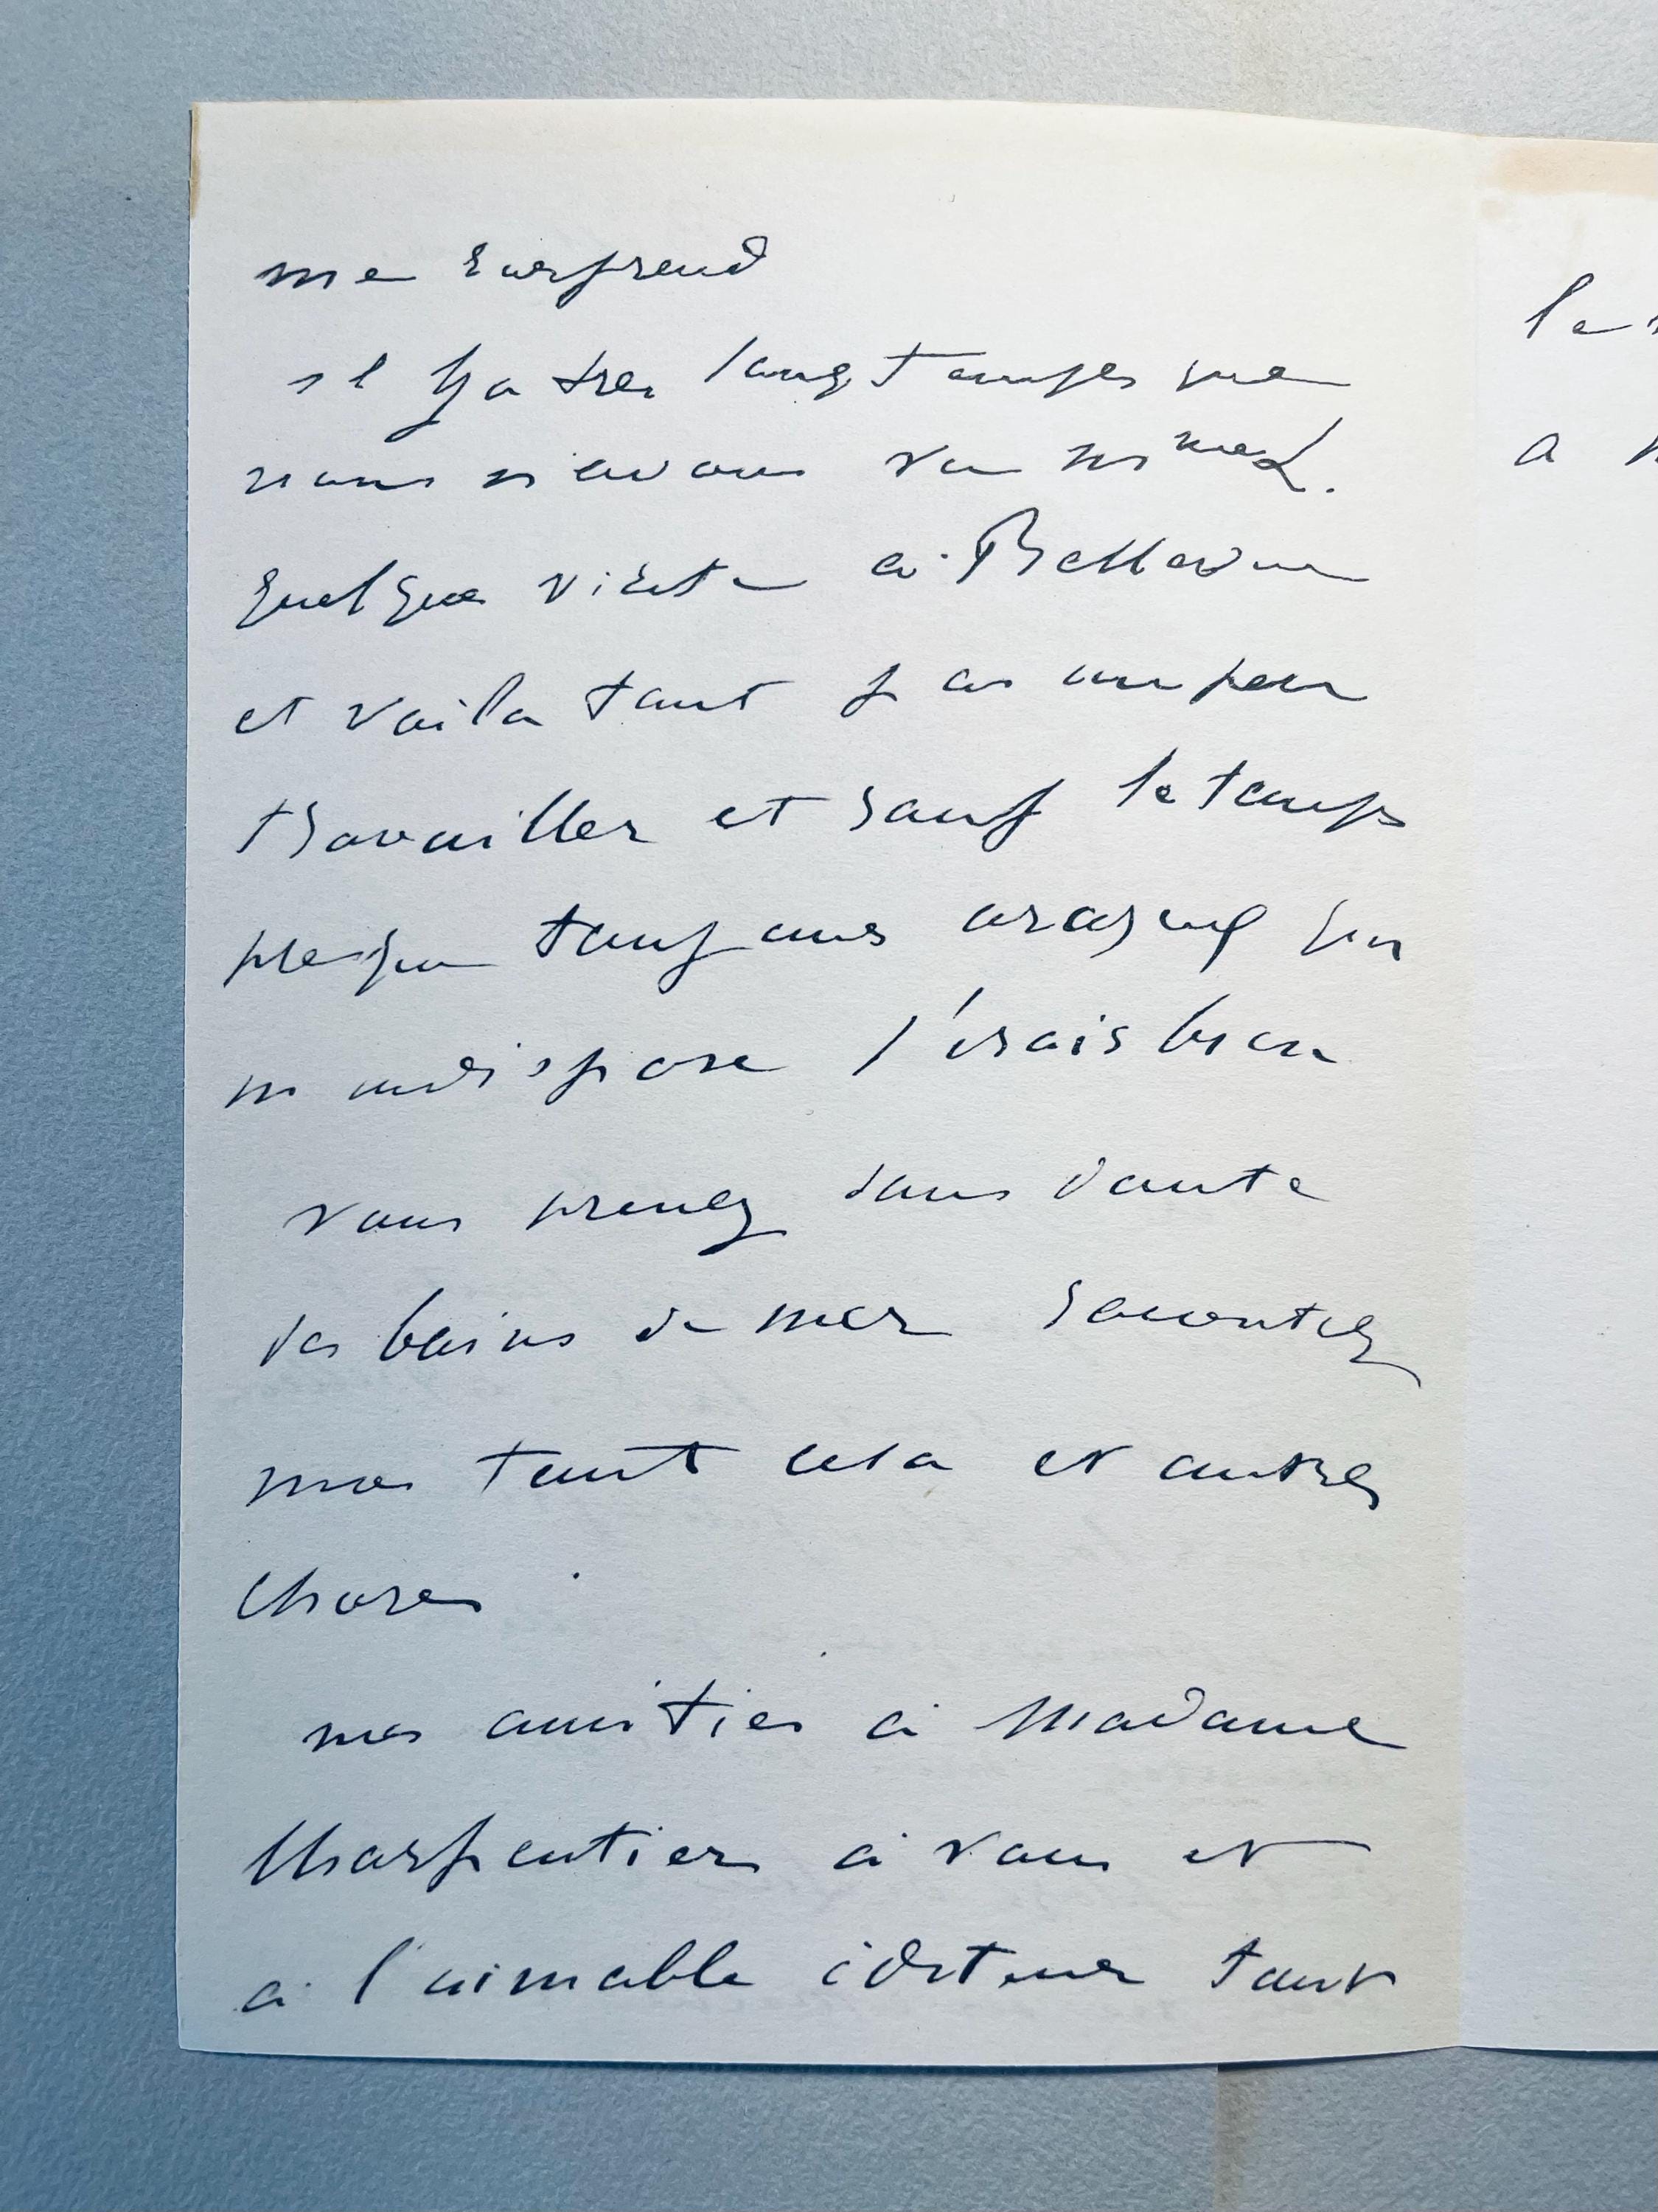 me surprend
il y a tres longtemps que
nous n'avons vu ni
quelque visite à Bellevue
et voila tout j'ai un peu
travailler et sauf le temps
presque toujours orageux qui
m indispose j'irais bien
vous prenez sans doute
des bains de mer racontez
moi tout cela et autres
choses
mes amities à Madame
Charpentier à vous et
à l'aimable éditeur tout
le
a